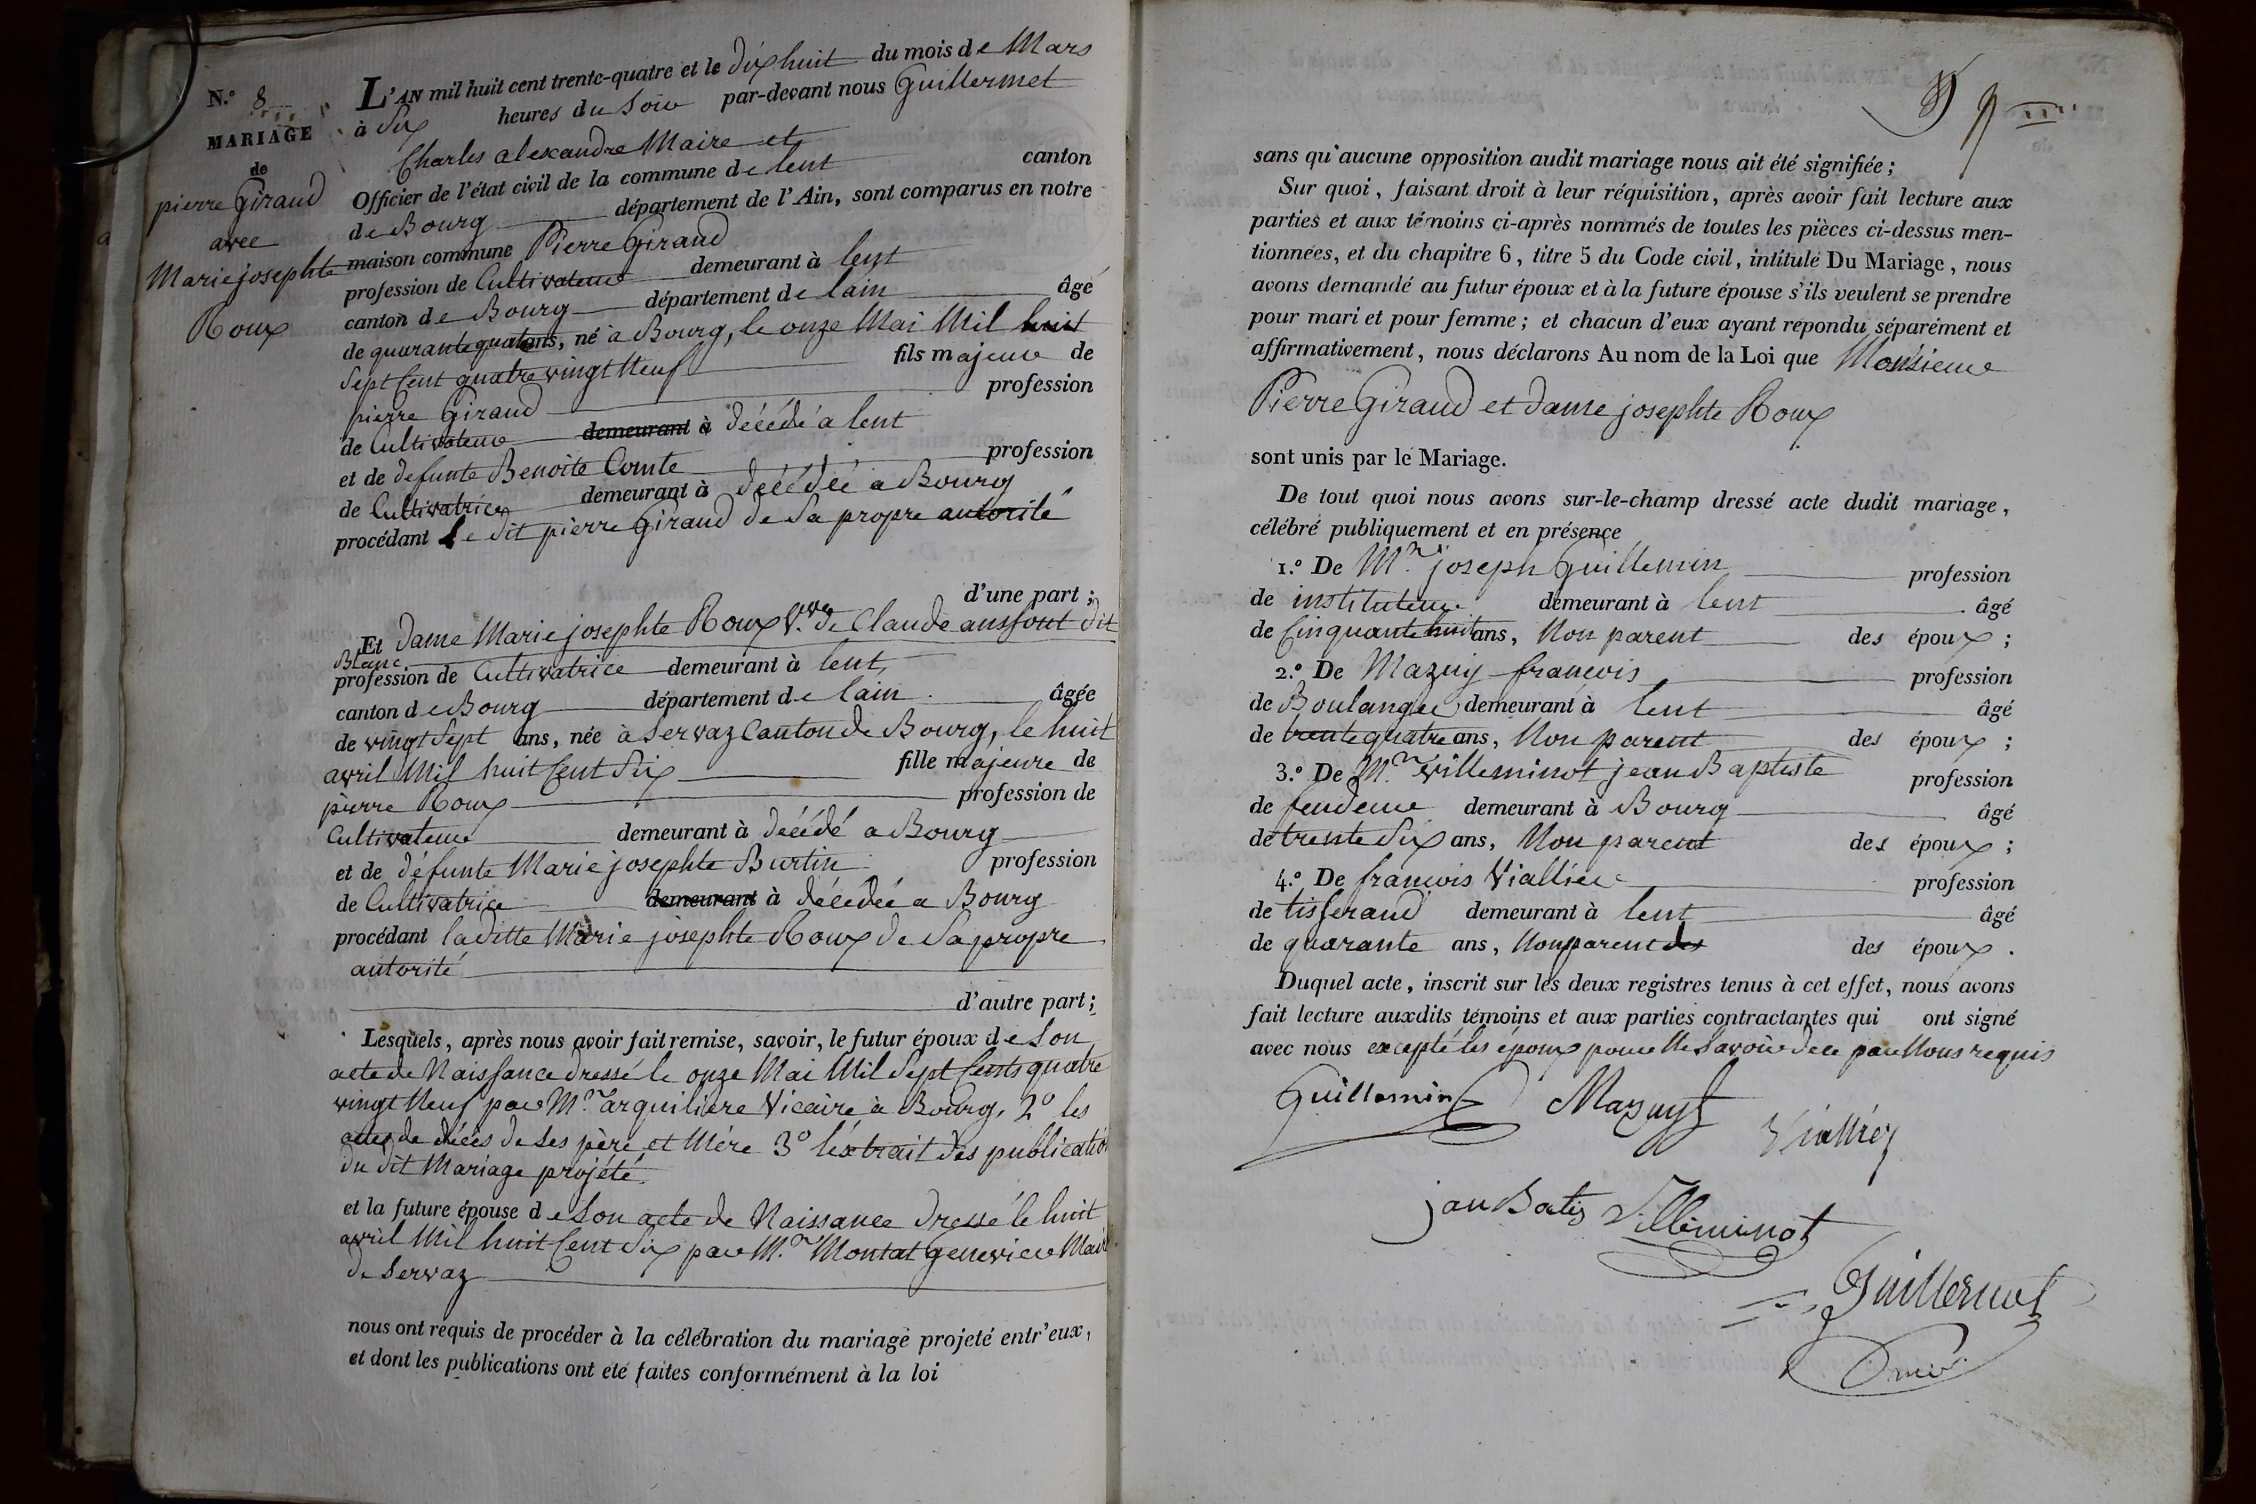 N.° 8
MARIAGE
de
pierre Giraud
avec
Marie josephte
Roux
L'AN mil huit cent trente-quatre et le dix huit du mois de Mars
à Six heures du Soir par-devant nous Guillermet
Charles alexandre Maire et
Officier de l'état civil de la commune de lent canton
de Bourg département de l'Ain, sont comparus en notre
maison commune Pierre Giraud
profession de Cultivateur demeurant à lent
canton de Bourg département de lain âgé
de quarante quatre ans, né à Bourg, le onze Mai Mil huit
Sept Cent quatre vingt Neuf fils majeur de
pierre Giraud profession
de Cultivateur demeurant à décédé a lent
et de defunte Benoite Comte profession
de Cultivatrice demeurant à décédée a Bourg
procédant Le dit pierre Giraud de Sa propre autorité
d'une part ;
Et dame Marie josephte Roux V.ve de Claude aussout dit
Blanc
profession de Cultivatrice demeurant à lent,
canton de Bourg département de lain. âgée
de vingt Sept ans, née à Servaz Canton de Bourg, le huit
avril Mil huit Cent Six fille majeure de
pierre Roux profession de
Cultivateur demeurant à décédé a Bourg
et de défunte Marie josephte Burtin profession
de Cultivatrice demeurant à décédée a Bourg
procédant laditte Marie josephte Roux de Sa propre
autorité
d'autre part ;
Lesquels, après nous avoir fait remise, savoir, le futur époux de Son
acte de Naissance dressé le onze Mai Mil Sept Cents quatre
vingt Neuf par M.r arquiliere Vicaire à Bourg, 2° les
actes de décès de Ses père et Mère 3° l'extrait des publication
du dit Mariage projeté.
et la future épouse de Son acte de Naissance dressé le huit
avril Mil huit Cent Six par M.r Montat genevier Maire
de Servaz
nous ont requis de procéder à la célébration du mariage projeté entr'eux,
et dont les publications ont été faites conformément à la loi
sans qu'aucune opposition audit mariage nous ait été signifiée ;
Sur quoi, faisant droit à leur réquisition, après avoir fait lecture aux
parties et aux témoins ci-après nommés de toutes les pièces ci-dessus men-
tionnées, et du chapitre 6, titre 5 du Code civil, intitulé Du Mariage, nous
avons demandé au futur époux et à la future épouse s'ils veulent se prendre
pour mari et pour femme ; et chacun d'eux ayant répondu séparément et
affirmativement, nous déclarons Au nom de la Loi que Monsieur
Pierre Giraud et dame josephte Roux
sont unis par le Mariage.
De tout quoi nous avons sur-le-champ dressé acte dudit mariage,
célébré publiquement et en présence
1.° De M.r joseph Guillemin profession
de instituteur demeurant à lent âgé
de Cinquante huit ans, Non parent des époux ;
2.° De Mazuy françois profession
de Boulanger demeurant à lent âgé
de trente quatre ans, Non parent des époux ;
3.° De M.r Villeminot jean Baptiste profession
de fendeur demeurant à Bourg âgé
de trente Six ans, Non parent des époux ;
4.° De françois Viallier profession
de tisserand demeurant à lent âgé
de quarante ans, Non parent des des époux.
Duquel acte, inscrit sur les deux registres tenus à cet effet, nous avons
fait lecture auxdits témoins et aux parties contractantes qui ont signé
avec nous excepté les époux pour Ne Savoir de ce par Nous requis
Guillemin Mazuy Viallier
jan Batis Villeminot
Guillermet